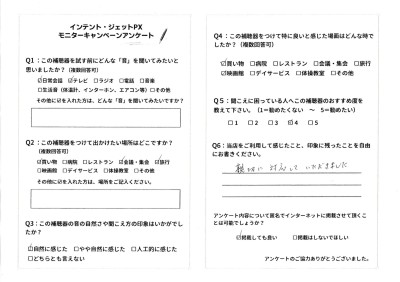 インテント・ジェットPX
モニターキャンペーンアンケート
Q1：この補聴器を試す前にどんな「音」を聞いてみたいと
思いましたか？（複数回答可）
☑日常会話 ☑テレビ □ラジオ □電話 □音楽
□生活音（体温計、インターホン、エアコン等）□その他
その他に☑を入れた方は、どんな「音」を聞いてみたいですか？
Q2：この補聴器をつけて出かけたい場所はどこですか？
（複数回答可）
☑買い物 □病院 □レストラン ☑会議・集会 ☑旅行
□映画館 □デイサービス □体操教室 □その他
その他に☑を入れた方は、場所をご記入ください。
Q3：この補聴器の音の自然さや聞こえ方の印象はいかがでし
たか？
☑自然に感じた □やや自然に感じた □人工的に感じた
□どちらとも言えない
Q4：この補聴器をつけて特に良いと感じた場面はどんな時で
したか？（複数回答可）
☑買い物 □病院 □レストラン □会議・集会 □旅行
☑映画館 □デイサービス □体操教室 □その他
Q5：聞こえに困っている人へこの補聴器のおすすめ度を
教えて下さい。（1＝勧めたくない ～ 5＝勧めたい）
□1 □2 □3 ☑4 □5
Q6：当店をご利用して感じたこと、印象に残ったことを自由
にお書きください。
親切に対応していただきました
アンケート内容について匿名でインターネットに掲載させて頂くこ
とは可能でしょうか？
☑掲載しても良い □掲載はしないでほしい
アンケートのご協力ありがとうございました。